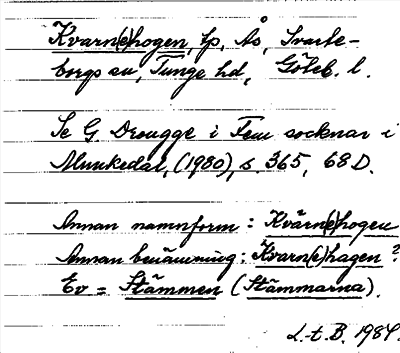 Kvarn(e)hogen, tp, Ås, Svarte-
borgs sn, Tunge hd, Göteb. l.
Se G. Drougge i Fem socknar i
Munkedal, (1980), s. 365, 68D.
Annan namnform: Kvärn(e)hogen
Annan benämning: Kvarn(e)hagen?
Ev = Stämmen (Stämmarna).
L-t. B. 1984.